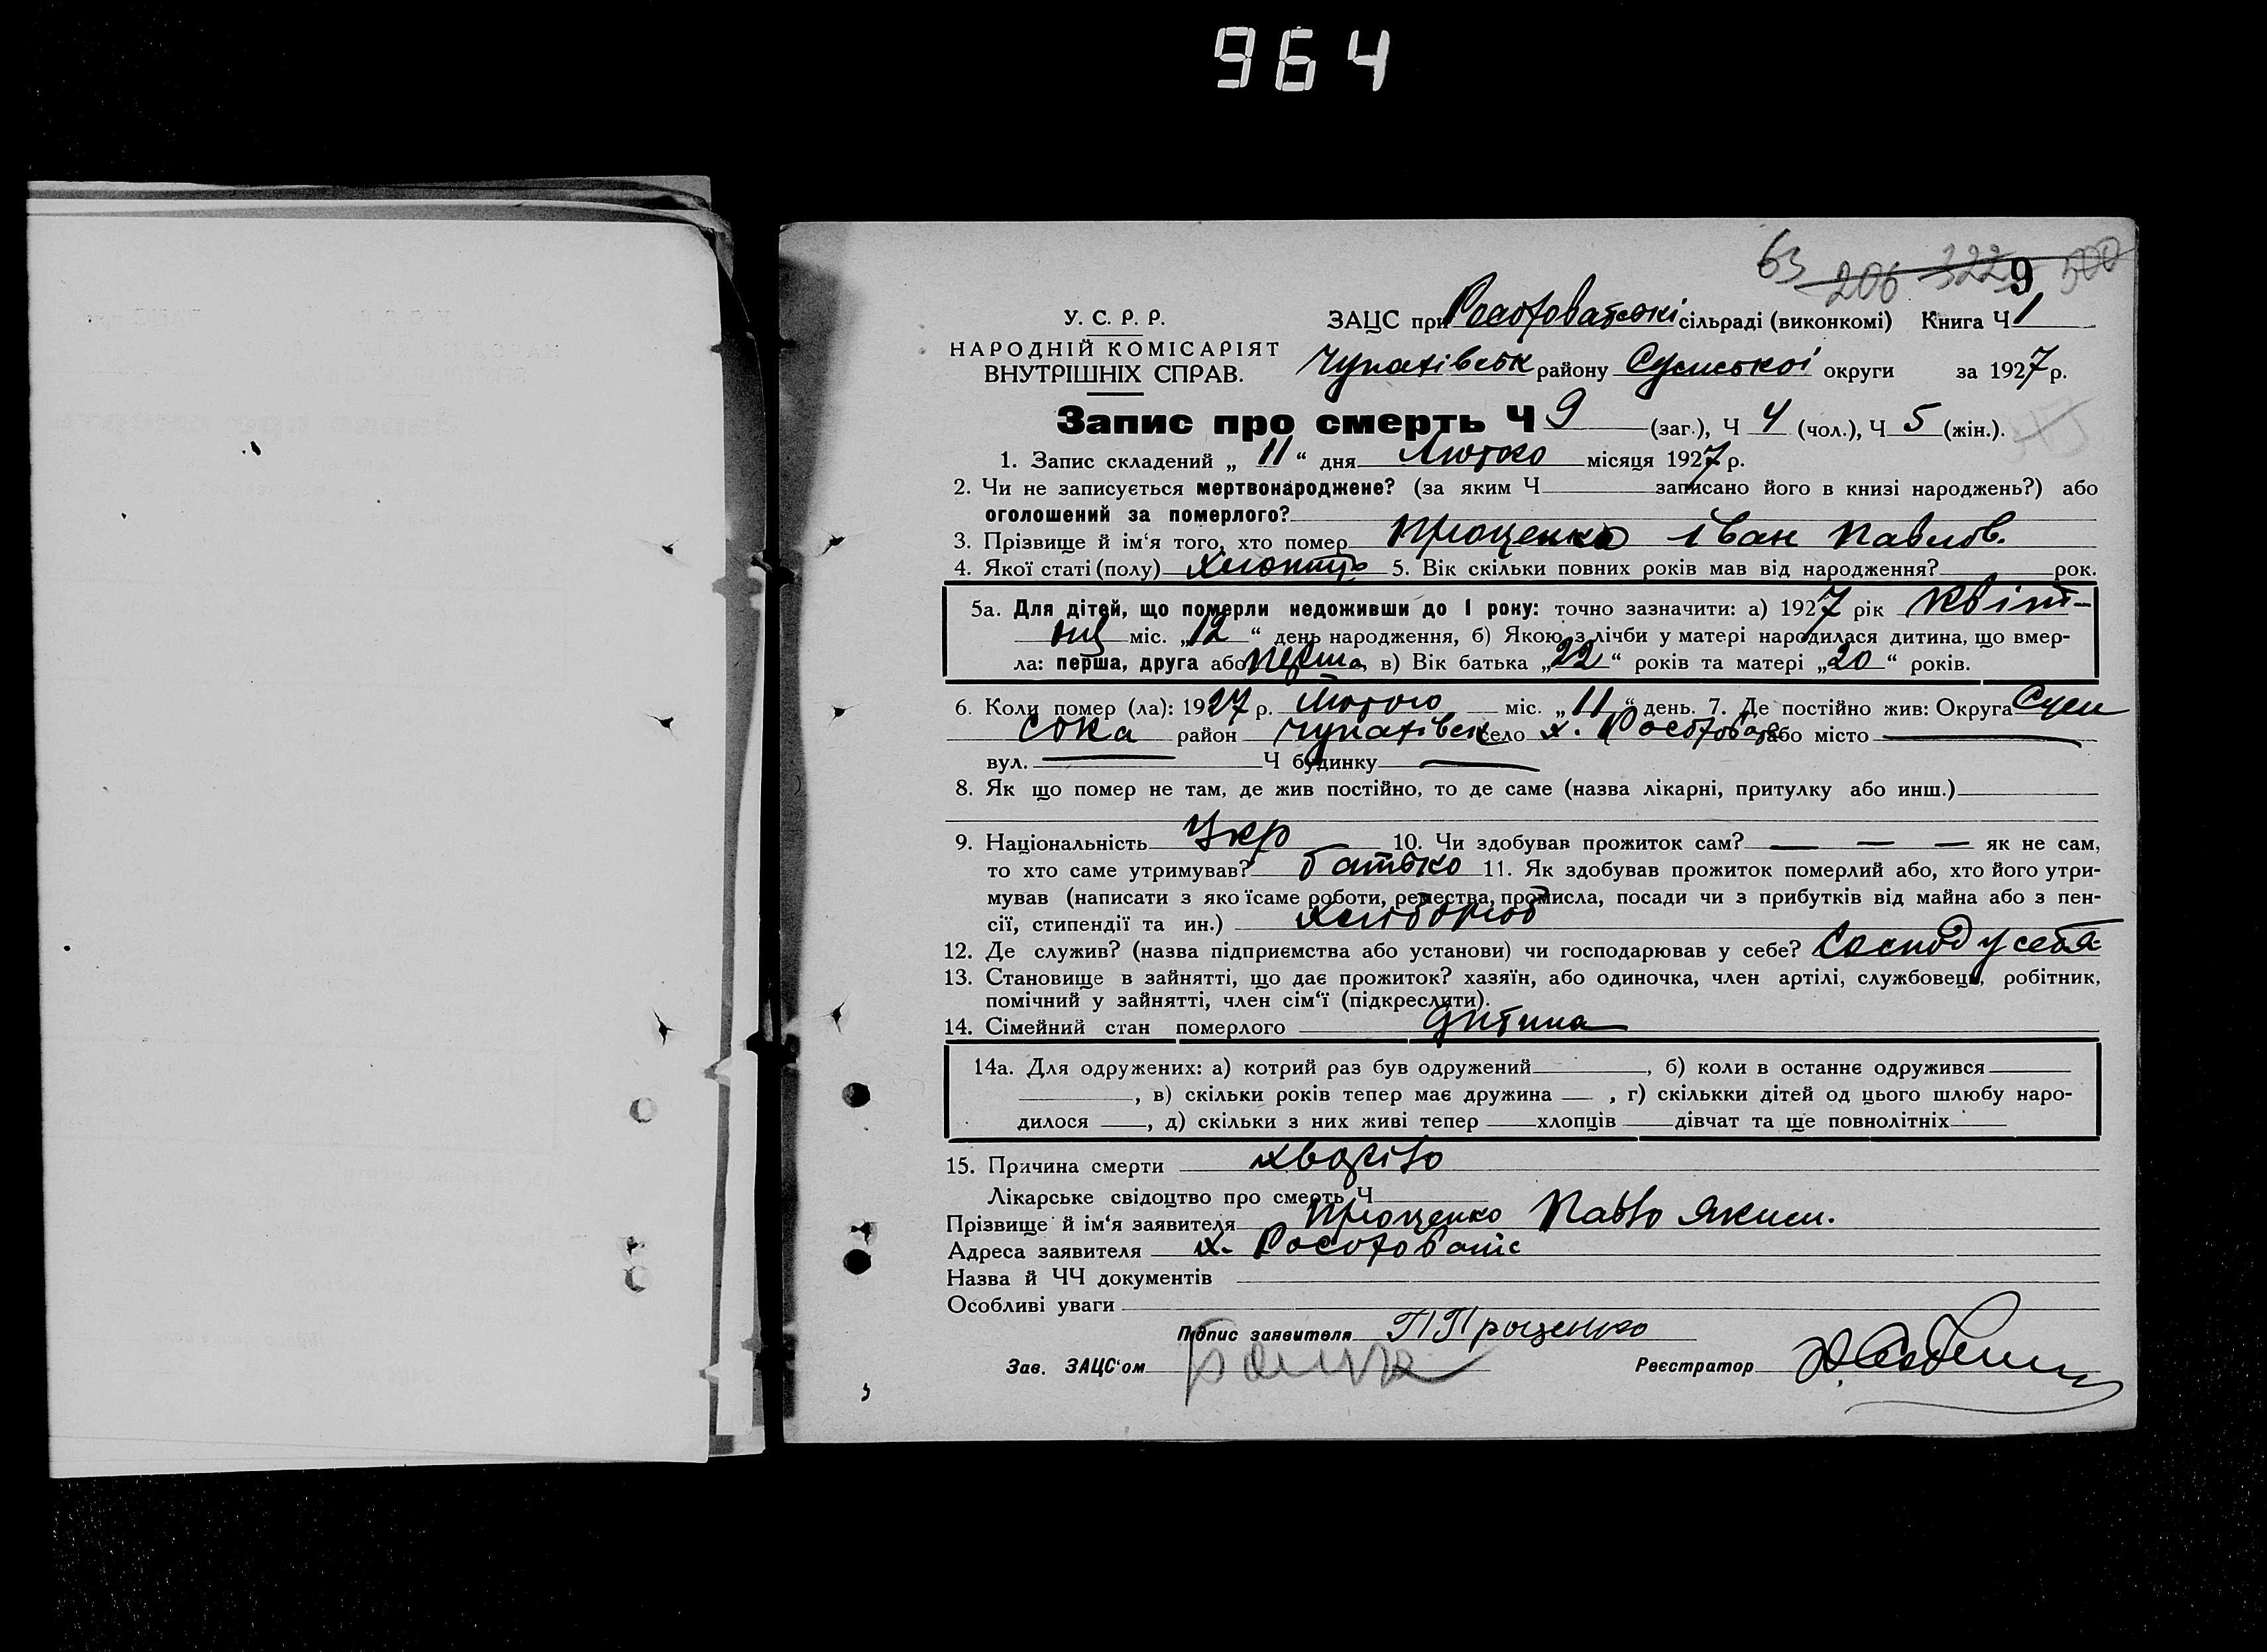 964
63 206 322 9 500
У. С. Р. Р.
НАРОДНІЙ КОМІСАРІЯТ
ВНУТРІШНІХ СПРАВ.
ЗАЦС при сільраді (виконкомі) Книга Ч 1
Чупахівськ району Сумської округи за 1927 р.
Запис про смерть Ч 9 (заг.), Ч 4 (чол.), Ч 5 (жін.).
1. Запис складений „ 11 “ дня Лютко місяця 1927 р.
2. Чи не записується мертвонароджене? (за яким Ч записано його в книзі народжень?) або
оголошений за померлого?
3. Прізвище й ім‘я того, хто помер Проценко Іван Павлов.
4. Якої статі (полу) 5. Вік скільки повних років мав від народження? рок.
5а. Для дітей, що померли недоживши до 1 року: точно зазначити: а) 1927 рік Квіт-
міс. „12“ день народження, б) Якою з лічби у матері народилася дитина, що вмер-
ла: перша, друга або перша, в) Вік батька „22“ років та матері „20“ років.
6. Коли помер (ла): 1927 р. Лютого міс. „11“ день. 7. Де постійно жив: Округа Сум
ська район Чупахівськ село х. або місто
вул. Ч будинку
8. Як що помер не там, де жив постійно, то де саме (назва лікарні, притулку або инш.)
9. Національність Укр 10. Чи здобував прожиток сам? — — — як не сам,
то хто саме утримував? батько 11. Як здобував прожиток померлий або, хто його утри-
мував (написати з яко їсаме роботи, ремества, промисла, посади чи з прибутків від майна або з пен-
сії, стипендії та ин.) хлібороб
12. Де служив? (назва підприємства або установи) чи господарював у себе? Господ у себя
13. Становище в зайнятті, що дає прожиток? хазяїн, або одиночка, член артілі, службовець, робітник,
помічний у зайнятті, член сім‘ї (підкреслити).
14. Сімейний стан померлого дитина
14а. Для одружених: а) котрий раз був одружений , б) коли в останнє одружився
, в) скільки років тепер має дружина , г) скількки дітей од цього шлюбу наро-
дилося , д) скільки з них живі тепер хлопців дівчат та ще повнолітніх
15. Причина смерти
Лікарське свідоцтво про смерть Ч
Прізвище й ім‘я заявителя Проценко Павло Яким.
Адреса заявителя х.
Назва й ЧЧ документів
Особливі уваги
Підпис заявителя П Проценко
Зав. ЗАЦС‘ом
Реєстратор